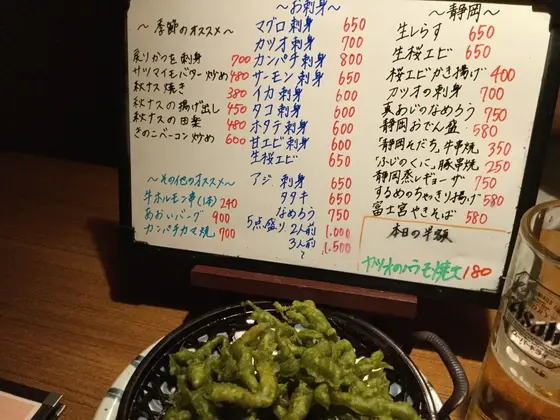 ～季節のオススメ～
炙りかつを刺身 700
サツマイモバター炒め 480
秋ナス焼き 380
秋ナスの揚げ出し 450
秋ナスの田楽 480
きのこベーコン炒め 600
～その他のオススメ～
牛ホルモン串(1本) 240
あおいバーグ 900
カンパチカマ焼 700
～お刺身～
マグロ刺身 650
カツオ刺身 700
カンパチ刺身 800
サーモン刺身 650
イカ刺身 600
タコ刺身 600
ホタテ刺身 600
甘エビ刺身 600
生桜エビ 650
アジ 刺身 650
タタキ 650
なめろう 750
5点盛り 2人前 1,000
3人前 1,500
～静岡～
生しらす 650
生桜エビ 650
桜エビかき揚げ 400
カツオの刺身 700
真あじのなめろう 750
静岡おでん盛 580
「静岡そだち」牛串焼 350
「ふじのくに」豚串焼 250
静岡蒸しギョーザ 750
するめのちゃきり揚げ 580
富士宮やきそば 580
本日の半額
カツオのハラモ焼 180
Asahi